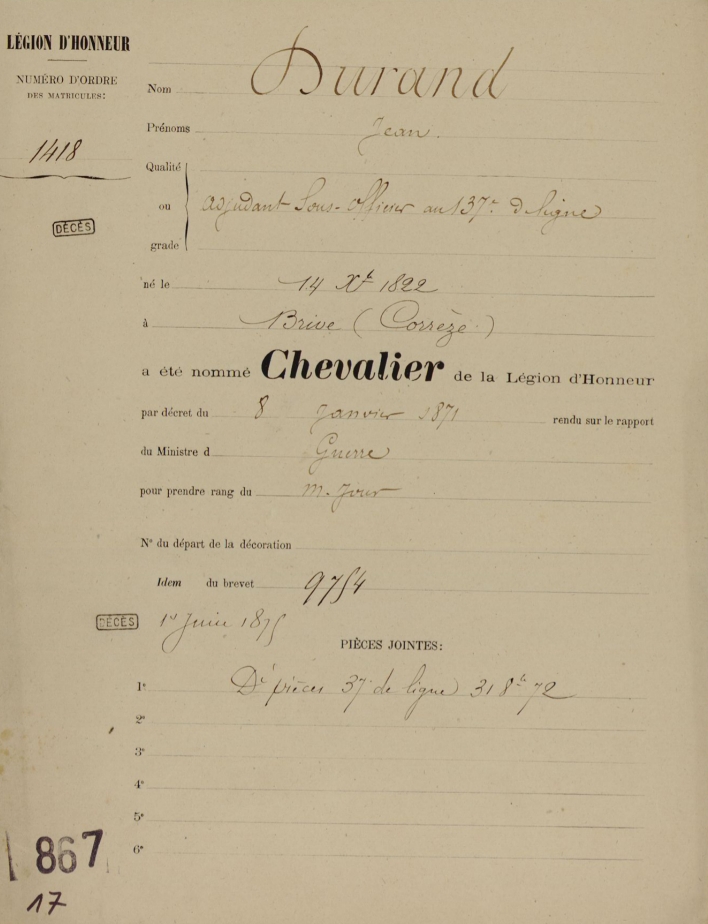 LÉGION D'HONNEUR
NUMÉRO D'ORDRE
DES MATRICULES:
1418
DÉCÈS
Nom Durand
Prénoms Jean.
Qualité
ou adjudant Sous-officier au 137e de ligne
grade
né le 14 Xbre 1822
à Brive (Corrèze)
a été nommé Chevalier de la Légion d'Honneur
par décret du 8 Janvier 1871 rendu sur le rapport
du Ministre d Guerre
pour prendre rang du m. Jour
N° du départ de la décoration
Idem du brevet 9754
DÉCÈS 1er Juin 1875
PIÈCES JOINTES:
1e Dr pièces 37 de ligne 31 8bre 72
2e
3e
4e
5e
6e
867
17